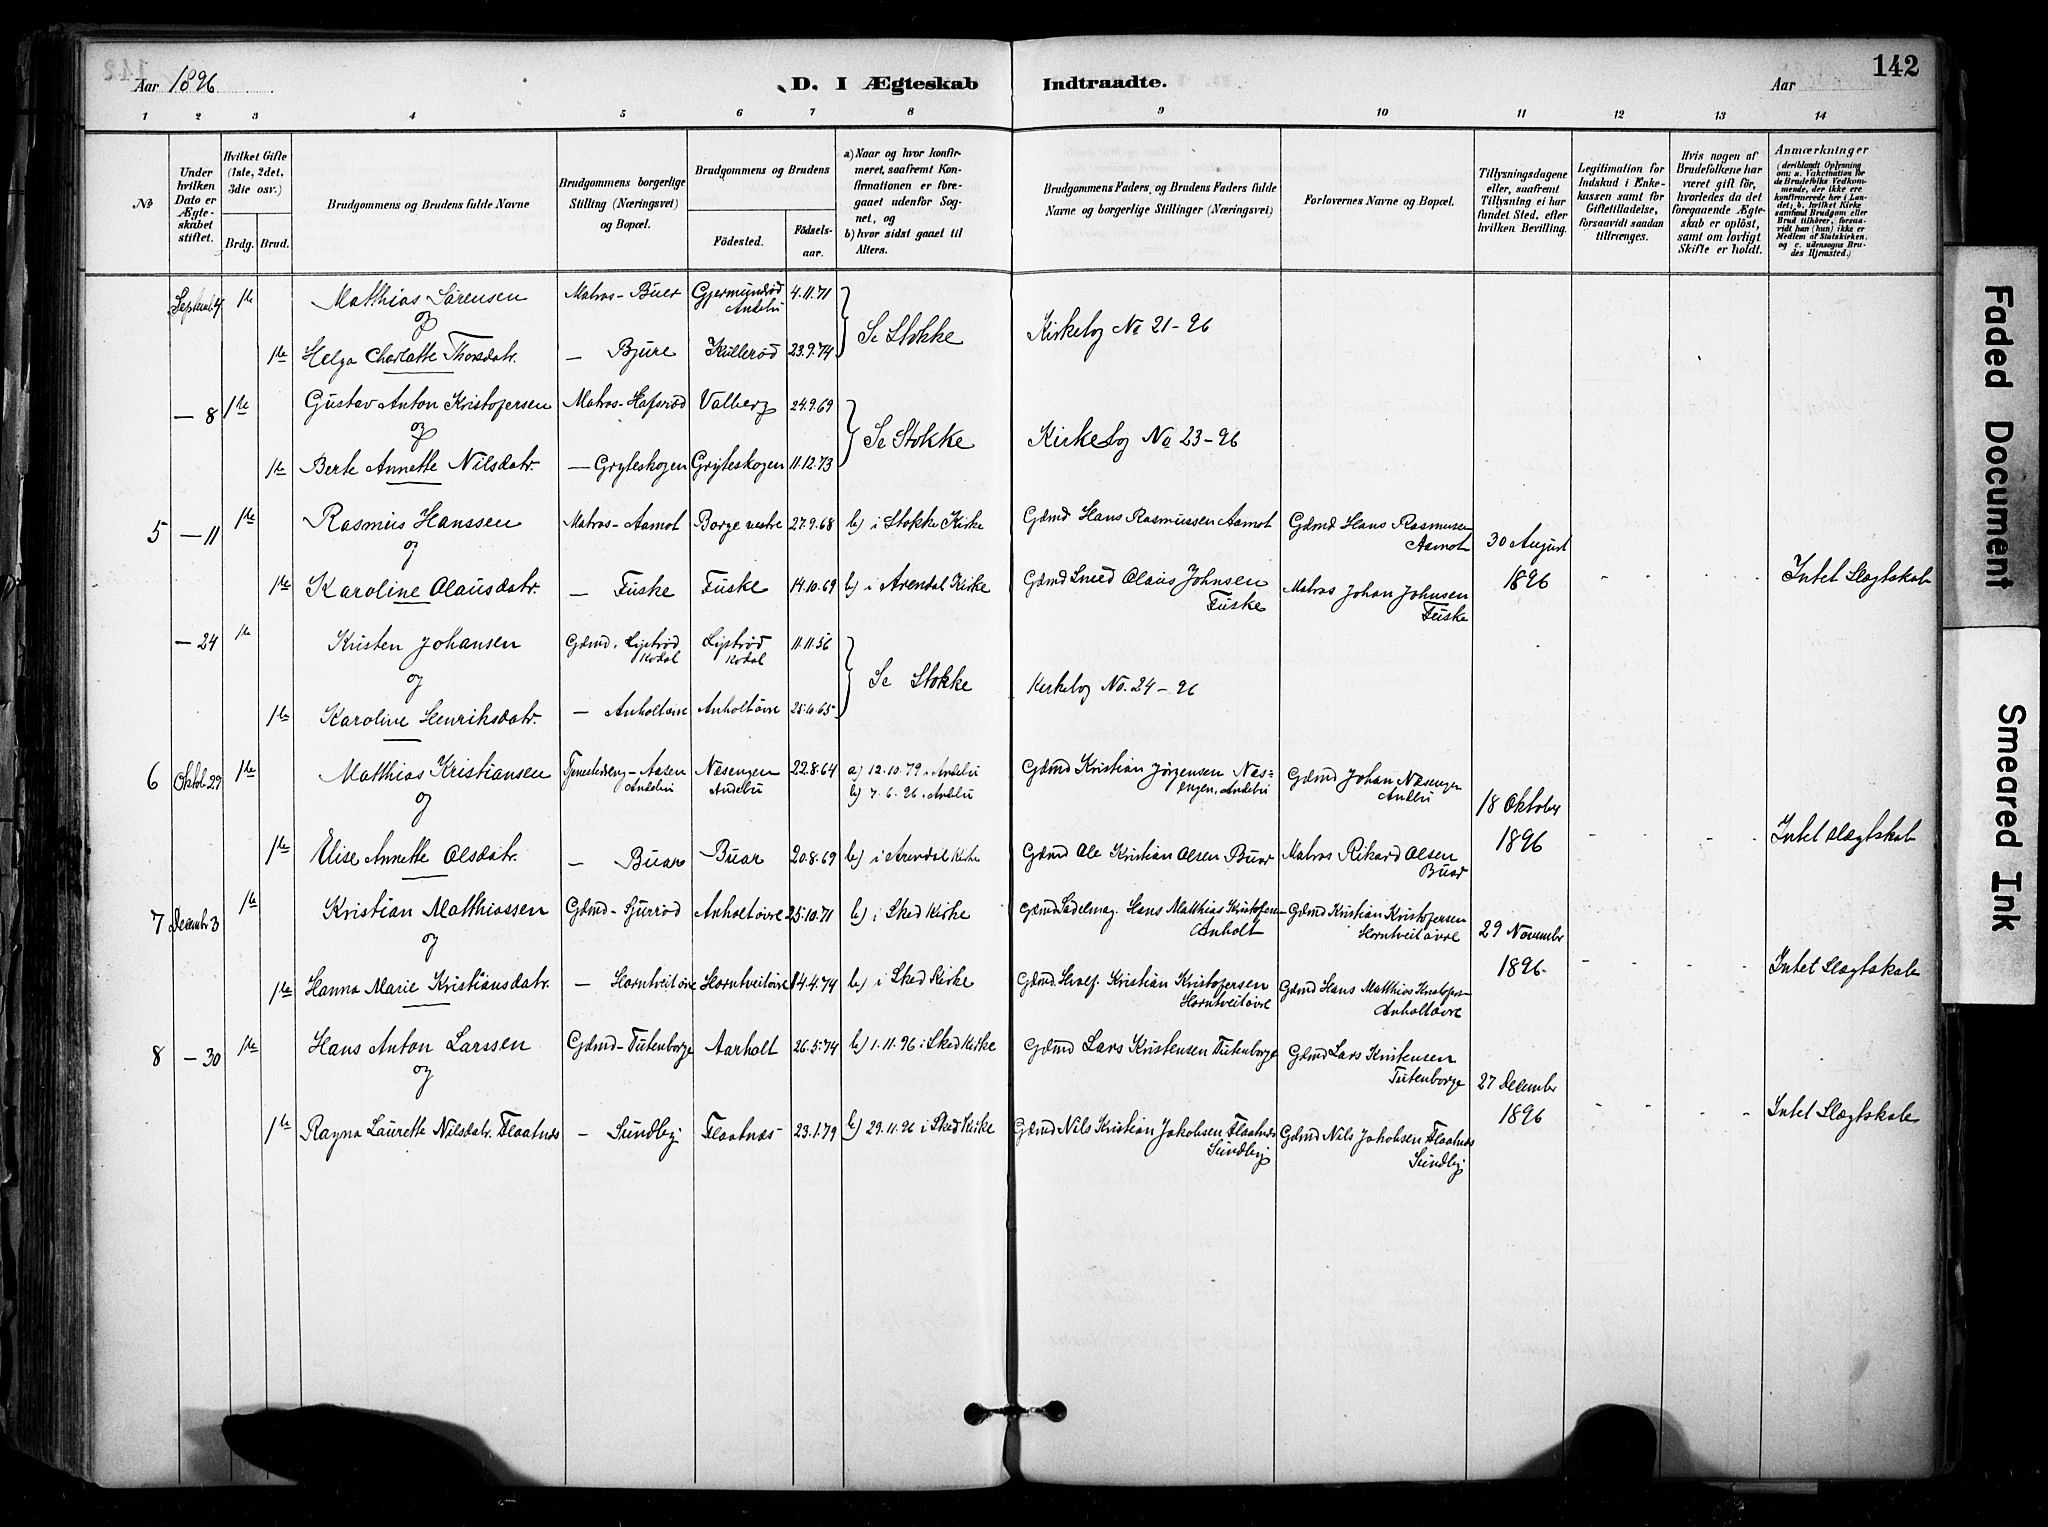 142
Aar 1896
D. I Ægteskab Indtraadte.
Aar
1 2 3 4 5 6 7 8 9 10 11 12 13 14
No
Under hvilken Dato er Ægteskabet stiftet.
Hvilket Gifte (1ste, 2det, 3die osv.)
Brdg. Brud.
Brudgommens og Brudens fulde Navne
Brudgommens borgerlige Stilling (Næringsvei) og Bopæl.
Brudgommens og Brudens
Födested. Födselsaar.
a) Naar og hvor konfirmeret, saafremt Konfirmationen er foregaaet udenfor Sognet, og
b) hvor sidst gaaet til Alters.
Brudgommens Faders og Brudens Faders fulde Navne og borgerlige Stillinger (Næringsvei)
Forlovernes Navne og Bopæl.
Tillysningsdagene eller, saafremt Tillysning ei har fundet Sted, efter hvilken Bevilling.
Legitimation for Indskud i Enkekassen samt for Giftetilladelse, forsaavidt saadan tiltrænges.
Hvis nogen af Brudefolkene har været gift før, hvorledes da det foregaaende Ægteskab er oplöst, samt om lovligt Skifte er holdt.
Anmærkninger
(deriblandt Oplysning om: a. Vakcination for de Brudefolks Vedkommende, der ikke ere konfirmerede her i Landet; b. hvilket Kirkesamfund Brudgom eller Brud tilhörer, forsaavidt han (hun) ikke er Medlem af Statskirken, og c. udensogns Brudes Hjemsted.)
Septemb. 1ste Matthias Sørensen Matros - Buer Gjermundrød Andebu 4.11.71
og
Se Stokke Kirkebog No 21-96
1ste Helga Charlotte Thorsdatr. — Bjure Kullerød 23.9.74
— 8 1ste Gustav Anton Kristofersen Matros - Hafsrød Valberg 24.9.69
og
Se Stokke Kirkebog No 23-96
1ste Berte Annette Nilsdatr. — Gryteskogen Gryteskogen 11.12.73
5 — 11 1ste Rasmus Hanssen Matros - Aamot Borge vestre 27.9.68 b) i Stokke Kirke Gdmd Hans Rasmussen Aamot Gdmd Hans Rasmussen Aamot 30 August
og
1ste Karoline Olausdatr. — Fuske Fuske 14.10.69 b) i Arendal Kirke Gdmd Smed Olaus Johnsen Fuske Matros Johan Johnsen Fuske 1896 - - - - Intet Slægtskab
— 24 1ste Kristen Johansen Gdmd. Lystrød Kodal Lystrød Kodal 11.11.56
og
Se Stokke Kirkebog No. 24-96
1ste Karoline Henriksdatr. — Anholt øvre Anholt øvre 25.10.65
6 Oktob. 22 1ste Matthias Kristiansen Tjenestedreng - Aasen Andebu Næsengen Andebu 22.8.64 a) 12.10.79 i Andebu b) 7.6.96 i Andebu Gdmd Kristian Jørgensen Næsengen, Andebu Gdmd Johan Næsengen Andebu 18 Oktober
og
1ste Elise Annette Olsdatr. — Buar Buar 20.8.69 b) i Arendal Kirke Gdmd Ole Kristian Olsen Buar Matros Rikard Olsen Buar 1896 - - - - Intet Slægtskab
7 Decembr 3 1ste Kristian Matthiassen Gdmd - Sjurrød Anholt øvre 25.10.71 b) i Sked Kirke Gdmd Sadelmag. Hans Matthias Kristofersen Anholt Gdmd Kristian Kristofersen Horntveit øvre 29 November
og
1ste Hanna Marie Kristiansdatr. — Horntveit øvre Horntveit øvre 14.4.74 b) i Sked Kirke Gdmd. Kristian Kristofersen Horntveit øvre Gdmd Hans Matthias Kristofersen Anholt øvre 1896 - - - - Intet Slægtskab
8 — 30 1ste Hans Anton Larssen Gdmd - Tutenborge Aarholt 26.5.74 b) 1.11.96 i Sked Kirke Gdmd Lars Kristensen Tutenborge Gdmd Lars Kristensen Tutenborge 27 December
og
1ste Ragna Laurette Nilsdatr. Flaatnes — Sundby Flaatnes 23.1.79 b) 29.11.96 i Sked Kirke Gdmd Nils Kristian Jakobsen Flaatnæs Sundby Gdmd Nils Jakobsen Flaatnæs Sundby 1896 - - - - Intet Slægtskab
Faded Document
Smeared Ink